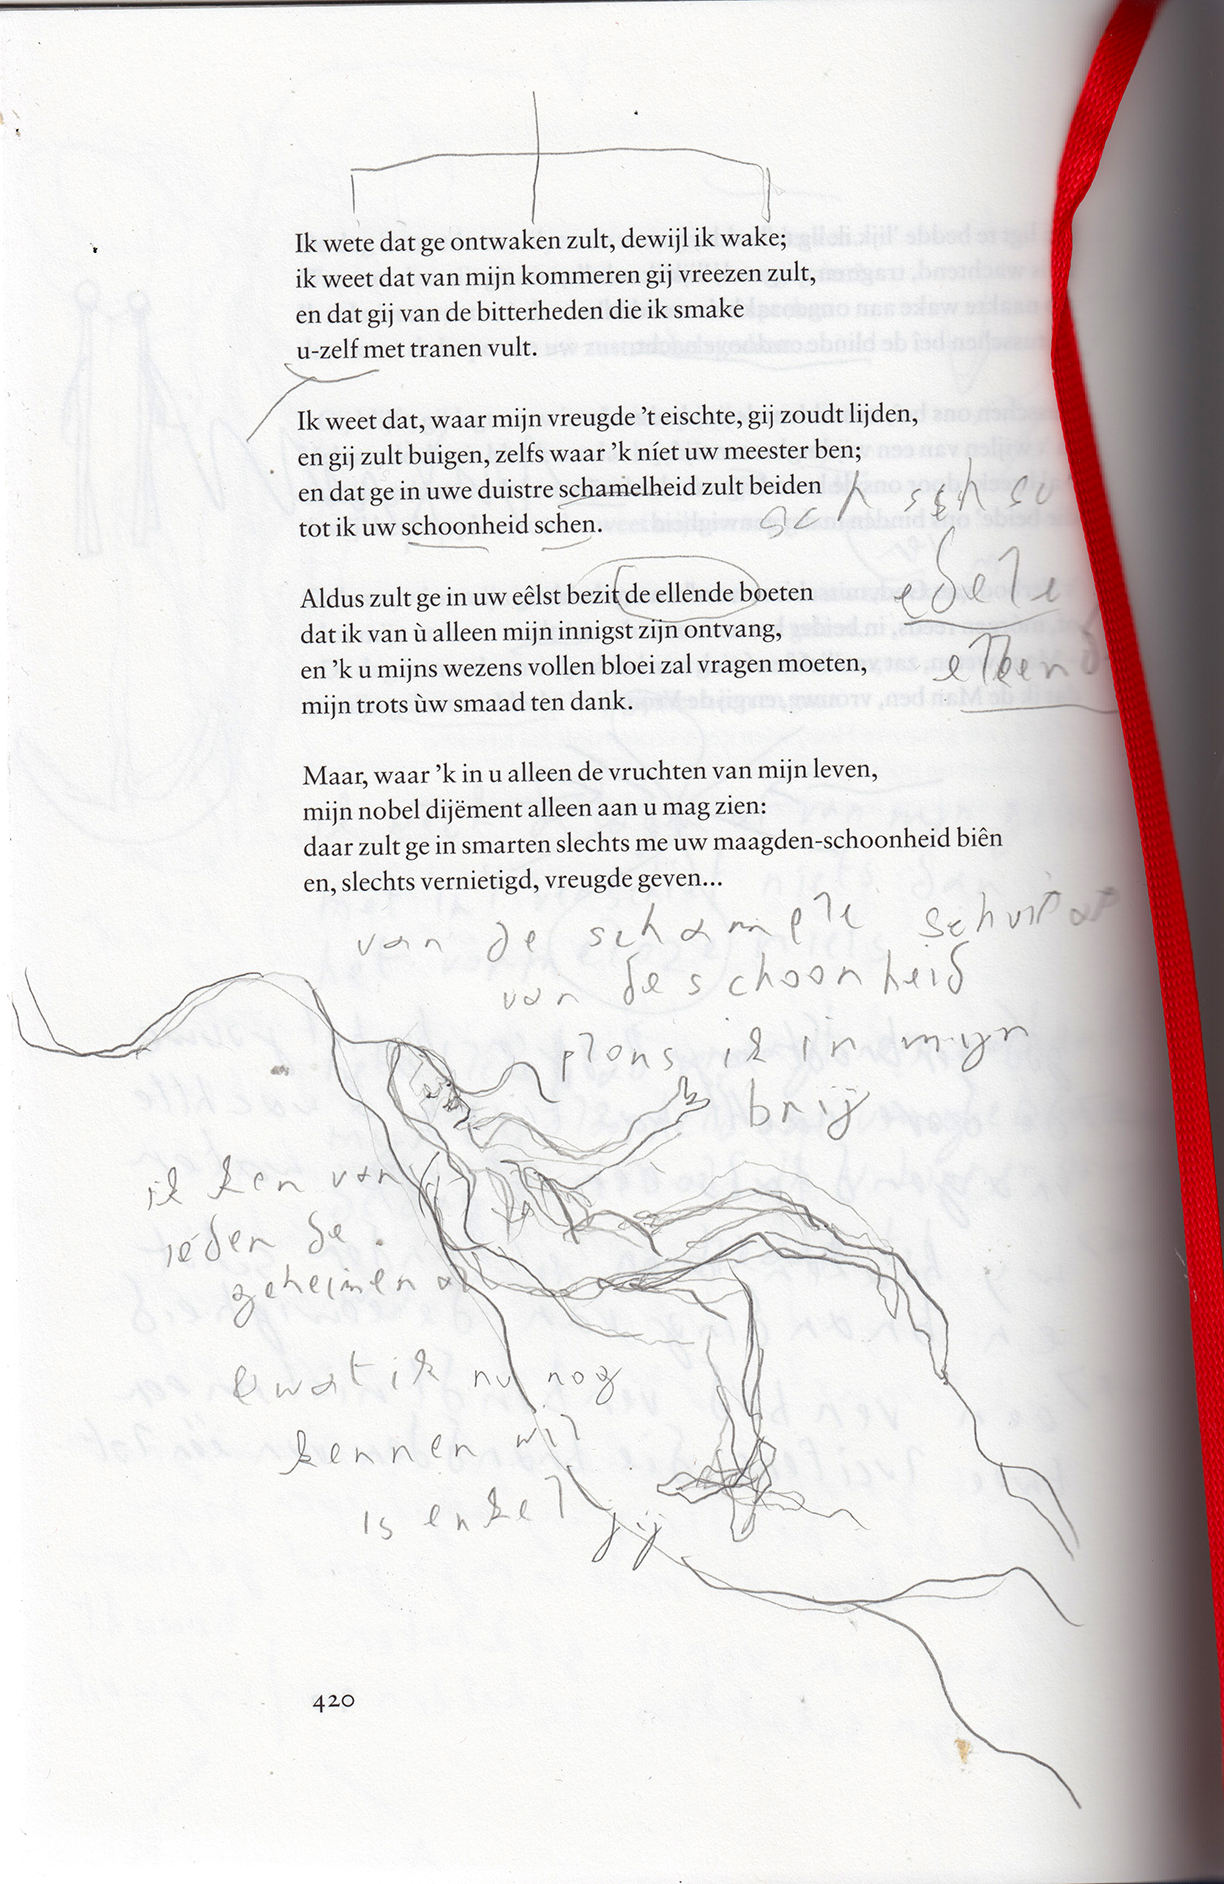 Ik wete dat ge ontwaken zult, dewijl ik wake;
ik weet dat van mijn kommeren gij vreezen zult,
en dat gij van de bitterheden die ik smake
u-zelf met tranen vult.
Ik weet dat, waar mijn vreugde ’t eischte, gij zoudt lijden,
en gij zult buigen, zelfs waar ’k níet uw meester ben;
en dat ge in uwe duistre schamelheid zult beiden
tot ik uw schoonheid schen.
sch
Aldus zult ge in uw eêlst bezit de ellende boeten
edele
dat ik van ù alleen mijn innigst zijn ontvang,
en ’k u mijns wezens vollen bloei zal vragen moeten,
mijn trots ùw smaad ten dank.
Maar, waar ’k in u alleen de vruchten van mijn leven,
mijn nobel dijëment alleen aan u mag zien:
daar zult ge in smarten slechts me uw maagden-schoonheid biên
en, slechts vernietigd, vreugde geven...
van de schampele
van de schoonheid
plons ik in mijn
brij
ik ken van
ieder de
geheimen al
& wat ik nu nog
kennen wil
is enkel jij
420